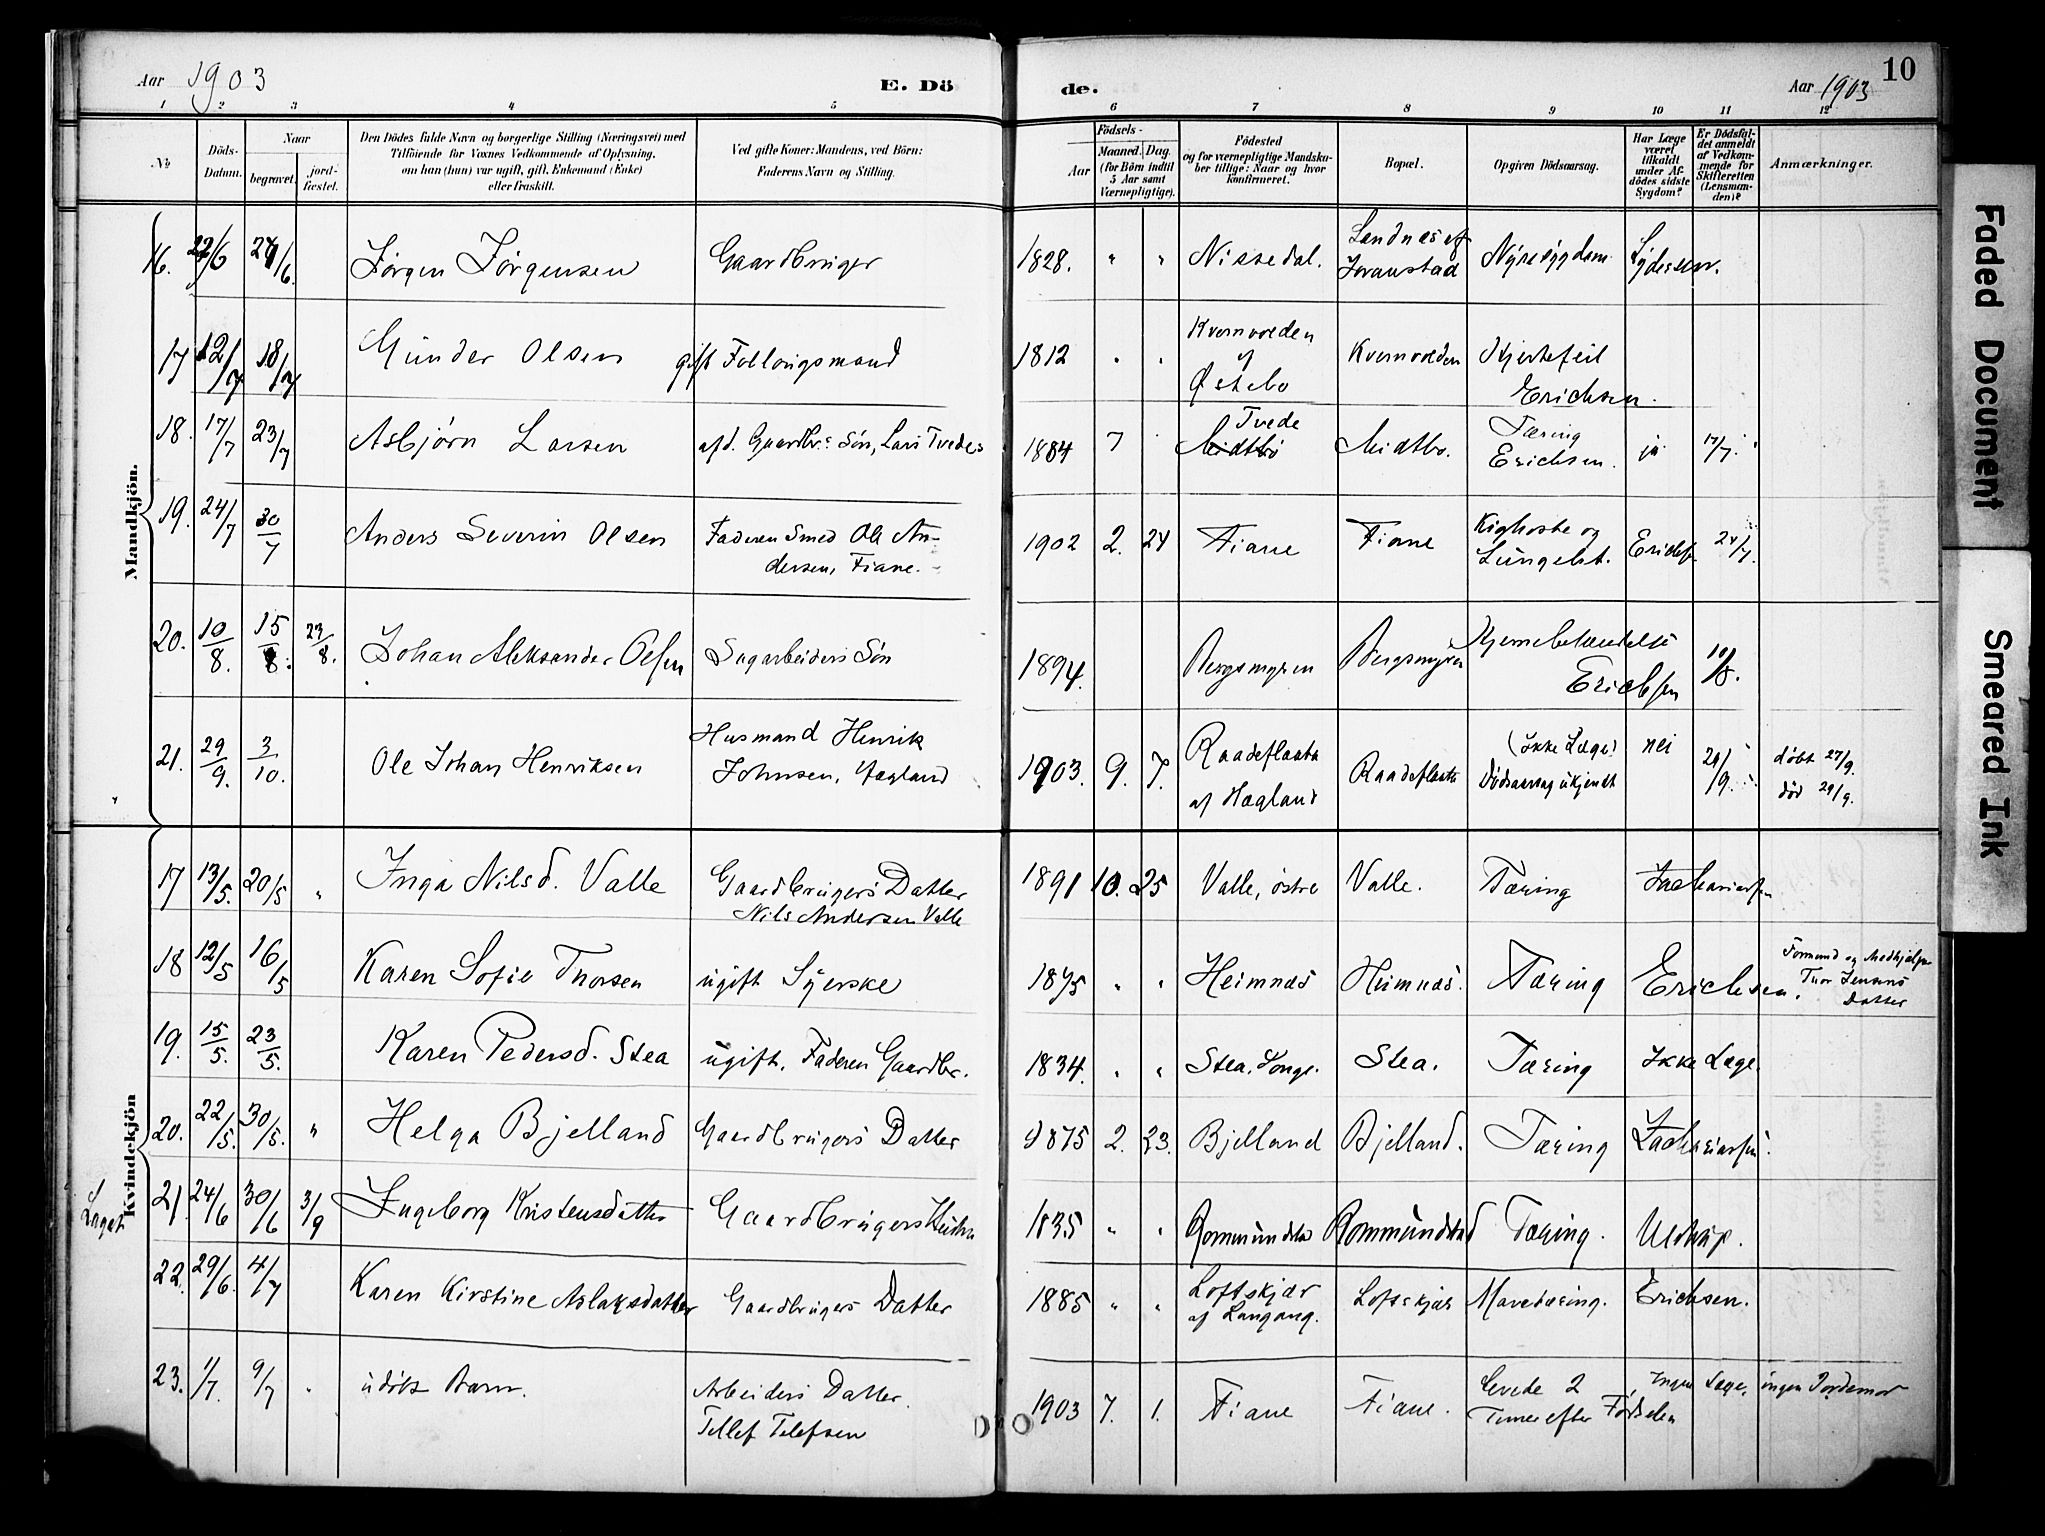 Aar 1903
E. Dö
de.
Aar 1903
10
1 2 3 4 5 6 7 8 9 10 11 12
No
Döds-Datum.
Naar
begravet.
jord-fæstet.
Den Dödes fulde Navn og borgerlige Stilling (Næringsvei) med
Tilföiende for Voxnes Vedkommende af Oplysning,
om han (hun) var ugift, gift, Enkemand (Enke)
eller fraskilt.
Ved gifte Koner: Mandens, ved Börn:
Faderens Navn og Stilling.
Födsels-
Aar
Maaned. Dag.
(for Börn indtil
5 Aar samt
Værnepligtige).
Födested
og for værnepligtige Mandska-
ber tillige: Naar og hvor
konfirmeret.
Bopæl.
Opgiven Dödsaarsag.
Har Læge
været
tilkaldt
under Af-
dödes sidste
Sygdom?
Er Dödsfal-
det anmeldt
af Vedkom-
mende for
Skifteretten
(Lensman-
den)?
Anmærkninger.
Mandkjön.
16. 22/6 29/6. Jörgen Jörgensen Gaardbruger 1828. " " Nissedal. Landnæs af Joraustad Nyresygdom Lydersen.
17 12/7 18/7 Gunder Olsen gift Follougsmand 1812 " " Kvernvolden af Østebø Kvernvolden Hjertefeil Erichsen.
18. 17/7 23/7 Asbjörn Larsen afd. Gaardbr.s Sön, Lars Tvedes 1884 7 Tvede Midtbö Midtbö. Tæring Erichsen. ja 17/7.
19. 24/7 30/7 Anders Severin Olsen Faderen Smed Ole An-
dersen, Fiane. 1902 2. 24 Fiane Fiane Kighoste og Lungebet. Erichs. 24/7.
20. 10/8. 15/8. 23/8. Johan Aleksander Olsen Sagarbeiders Sön 1894. Bergsmyren Bergsmyren Hjernebetændelse Erichsen 10/8.
21. 29/9. 3/10. Ole Johan Henriksen Husmand Henrik
Johnsen, Hægland 1903. 9. 7. Raadeflaata af Hægland Raadeflaata (ikke Læge) Dödsaarsag ukjendt nei 29/9. döbt 27/9.
död 29/9.
Kvindekjön
17 13/5. 20/5 " Inga Nilsd. Valle Gaardbrugers Datter
Nils Andersen Valle 1891 10. 25 Valle, östre Valle. Tæring Zachariassen
18 12/5 16/5 Karen Sofie Thorsen ugift Syerske 1875 " " Heimnæs Heimnæs. Tæring Erichsen. Formand og Medhjelper
Thor Jensens
Datter
19. 15/5. 23/5. Karen Pedersd. Stea ugift. Faderen Gaardbr. 1834. " " Stea. Songe. Stea. Tæring Ikke Læge.
20. 22/5. 30/5. " Helga Bjelland Gaardbrugers Datter 1875 2. 23. Bjelland Bjelland. Tæring Zachariassen.
21. 24/6 30/6 3/9 Ingeborg Kristensdatter Gaardbrugers Hustru 1835 " " Rommundsta Rommundstad Tæring. Udstrup.
22. 29/6. 4/7 Karen Kirstine Aslaksdatter Gaardbrugers Datter 1885 " " Loftskjær
af Langang. Loftskjær Mavetæring. Erichsen.
23. 1/7. 9/7 " udöbt Barn. Arbeiders Datter.
Tellef Telefsen 1903 7. 1. Fiane Fiane. Levede 2
Timer efter Födselen Ingen Læge, ingen Jordemor
Faded Document
Smeared Ink